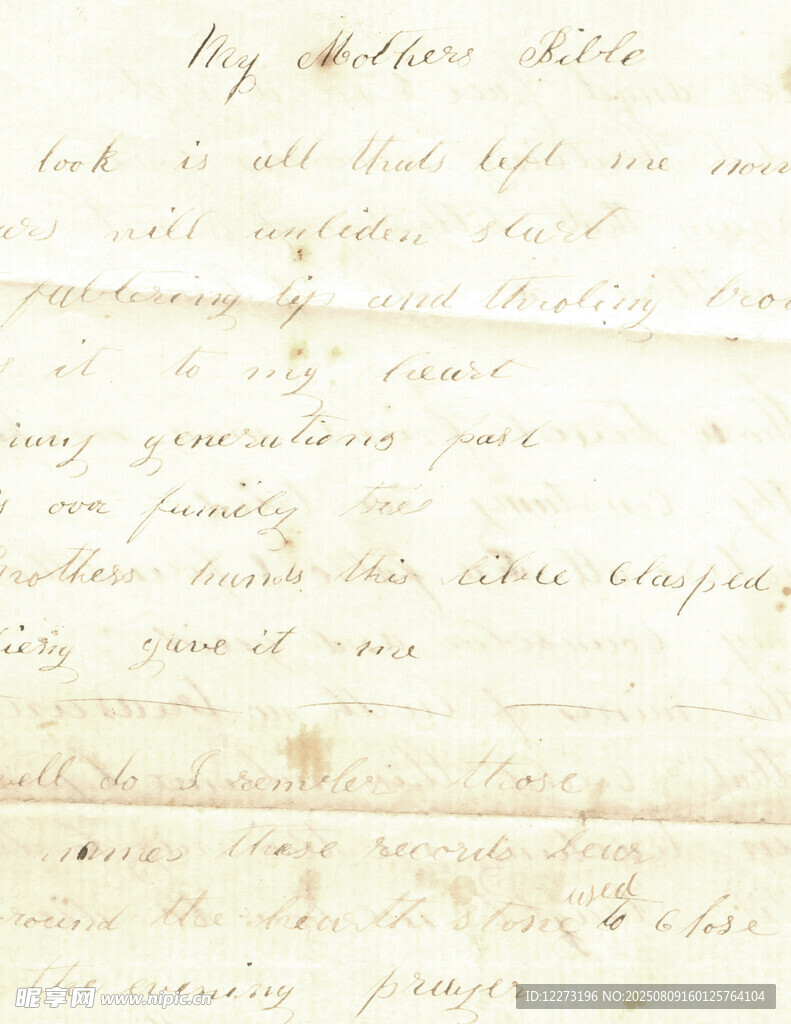 My Mothers Bible
look is all thats left me now
ars will unbiden start
faltering lip and throbing brow
s it to my heart
many generations past
s our family tree
Mothers hands this bible Clasped
dieng gave it me
well do I rember those
names these records bear
round the hearth stone used to Close
the evening prayer
昵享网 www.nipic.cn
ID:12273196 NO:20250809160125764104